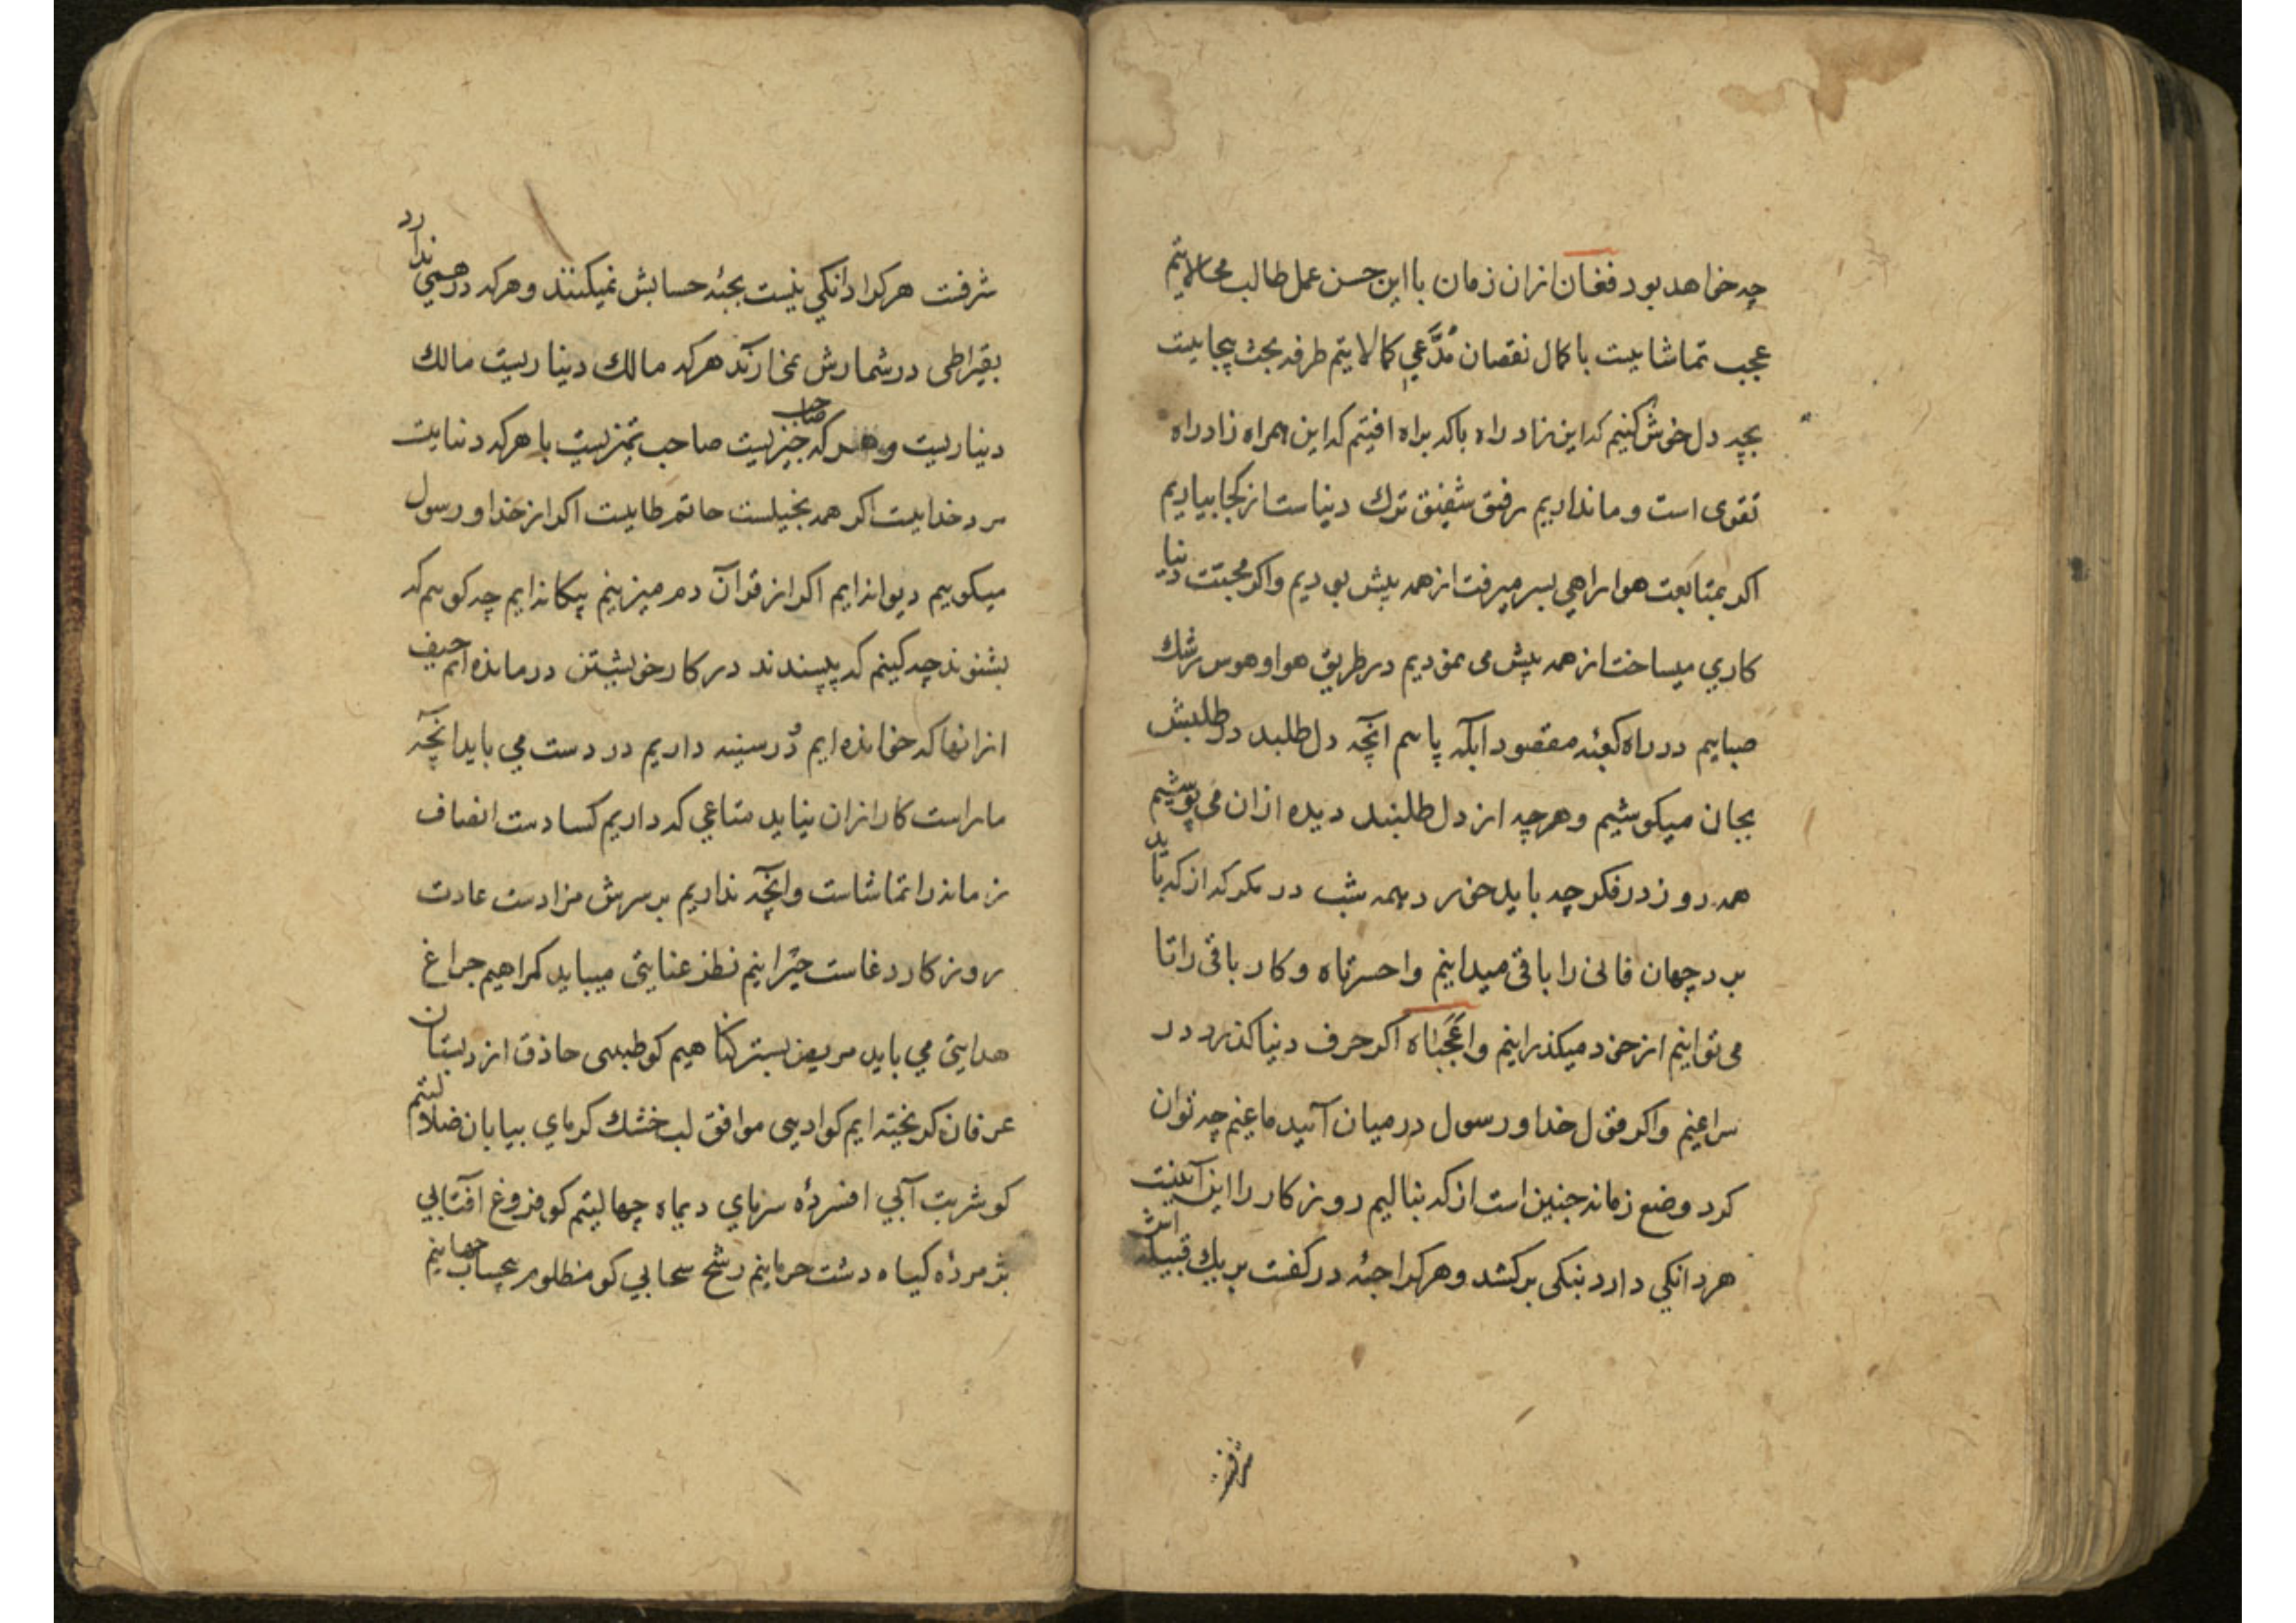 چه خواهد بود فغان ازان زمان با این حسن عمل طالب محالاتیم
عجب تماشاییست با کمال نقصان مدّعی کمالاتیم طرفه بحث بیجاییست
بچه دل خوش کنیم که این نزاد راه باکه براه افتیم که این همراه زاد راه
تقوی است و ما نداریم رفیق شفیق ترك دنیاست از کجا بیاریم
اکر بمتابعت هوا راهی بسر میرفت از همه پیش بودیم واکر محبت دنیا
کاری میساخت از همه پیش می نمودیم در طریق هوا و هوس رشك
صباییم در راه کعبۀ مقصود آبله پاییم آنچه دل طلبد در طلبش
بجان میکوشیم و هرچه از دل طلبند دیده ازان می پوشیم
همه روز در فکر چه باید خورد و همه شب در مکر که از که باید
برد جهان فانی را باقی میدانیم واحسرتاه و کار باقی را تا
می توانیم از خود میکذرانیم واعجباه اکر حرف دنیا کذرد در
سراغیم واکر قول خدا و رسول در میان آید ماغیم چه توان
کرد وضع زمانه چنین است از که بنالیم روزکار را این آیینیست
هر دانکی دارد بنیکی برکشد و هرکرا حبّۀ در کفت بریك قبیله اش
شرفت
شرفت هرکرا دانکی نیست بحبّۀ حسابش نمیکنند و هرکه درهمی ندارد
بقیراطی در شمارش نمی آرند هرکه مالك دیناریست مالك
دیناریست و هرکه صاحب چیزیست صاحب تمیزیست با هرکه دنیایست
مرد خداییست اکر همه بخیلست حاتم طاییست اکر از خدا و رسول
میکوییم دیوانه ایم اکر از قرآن دم میزنیم بیکانه ایم چه کوییم که
بشنوند چه کنیم که بپسندند در کار خویشتن درمانده ایم حیف
ازانها که خوانده ایم دُر سینه داریم در دست می باید آنچه
ماراست کار ازان نیاید متاعی که داریم کسادست انصاف
زمانه را تماشاست وانچه نداریم بر سرش مزادست عادت
روزکار دغاست حیرانیم نظر عنایتی میباید کمراهیم چراغ
هدایتی می باید مریض بستر کناهیم کو طبیبی حاذق از دبستان
عرفان کریخته ایم کو ادیبی موافق لب خشك کرمای بیابان ضلالتیم
کو شربت آبی افسردۀ سرمای دیماه جهالتیم کو فروغ آفتابی
پژمردۀ کیاه دشت حرمانیم رشح سحابی کو مظلوم جهانیم